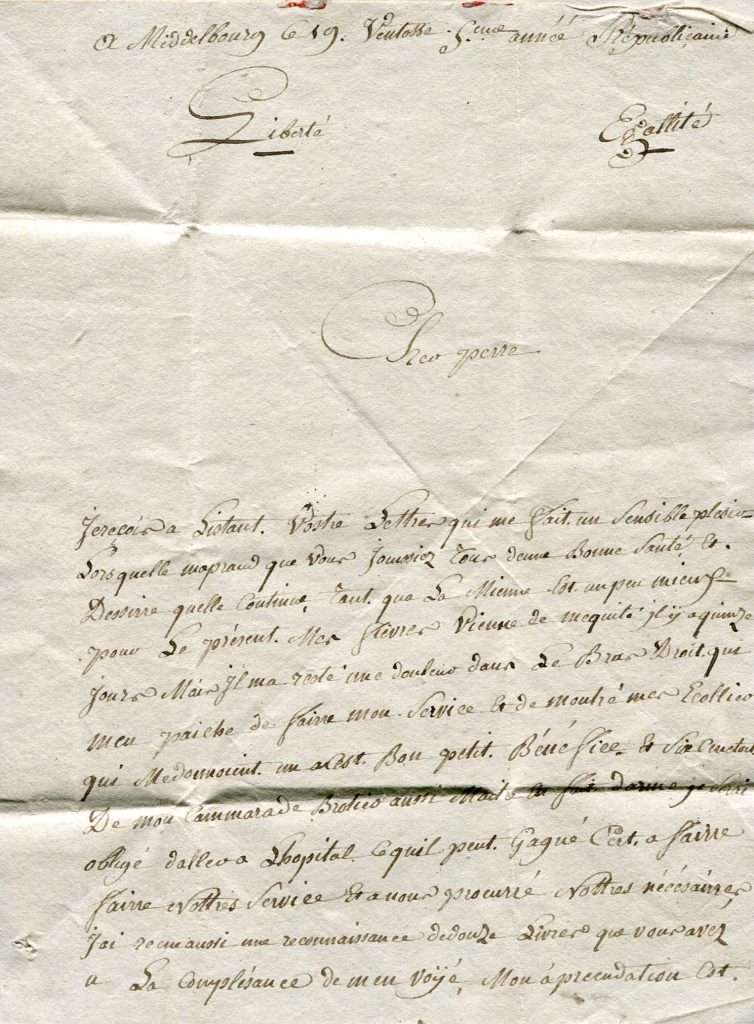 a Middelbourg le 19. Ventosse 5eme annéé Républiçaine
Liberté Egallité
Cher perre
Jereçois a Listant. Vostre Lettres qui me fait un Sensible plesir
Lors quelle maprand que Vous Joussiez Tous denne Bonne Santé Et.
Dessirre quelle Continue, Tant. que La Mienne Est un peu mieux
pour Le présent. Mes fièvres Vienne de mequité jl y a quinze
Jours Mais Jl ma resté une douleur dans Le Bras Droit. qui
men paiche de fairre mon Service Et de montré mes Ecollier
qui Medonnoient. un acest. Bon petit. Bénéfice. Et Sie
De mon Cammarade aussi Maitre En fait darme je
obligé daller a Lhopital. Cequil peut. Gagné Cert. a fairre
fairre Nottres Service Et a nous procurré Nottres nécésairres
J'ai recue aussi une reconnaissance dedouze Livres que vous avez
u La Complésance de men voÿé, Mon apreendation Est.